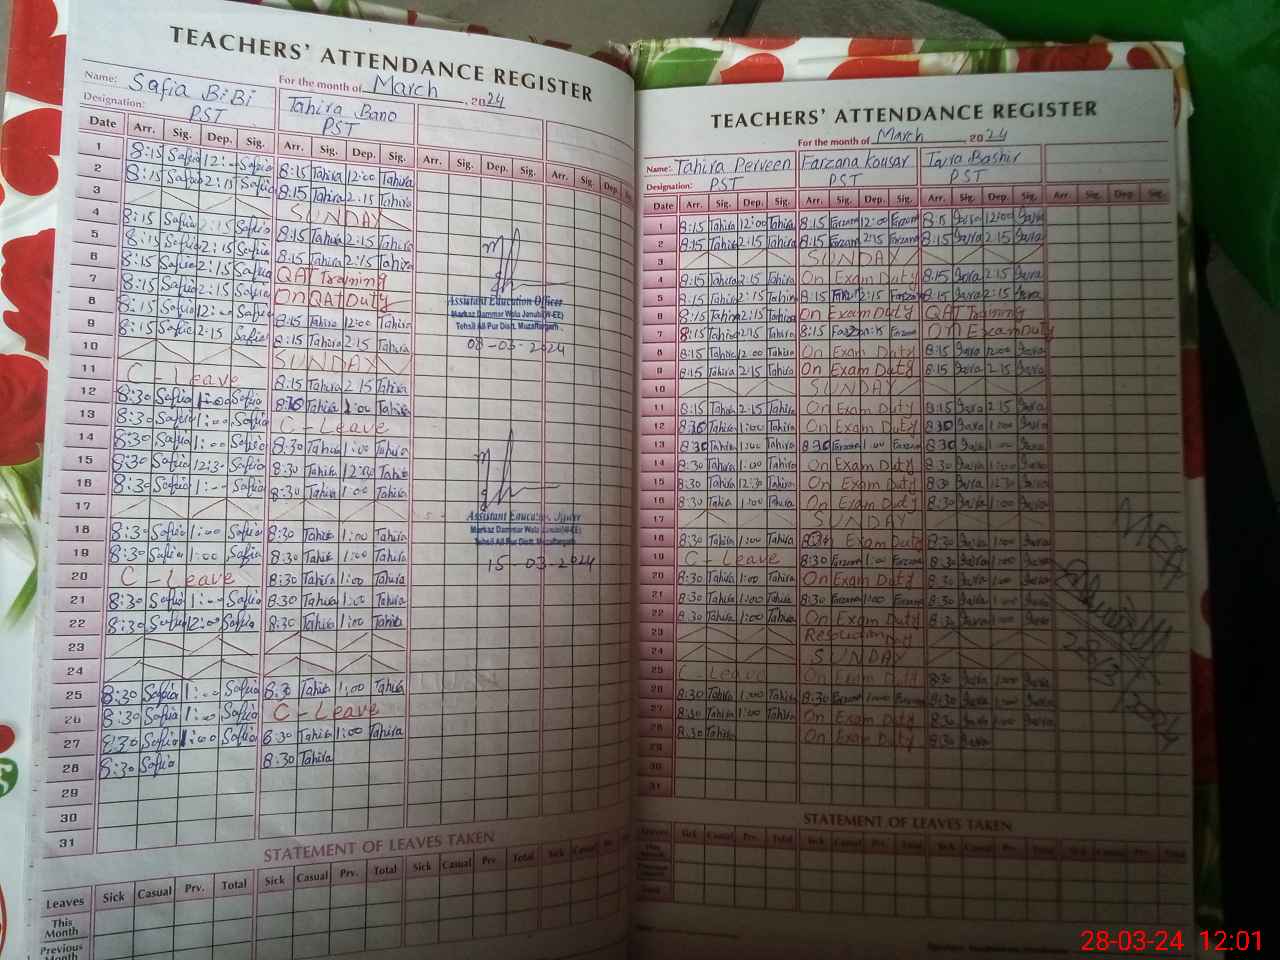 TEACHERS' ATTENDANCE REGISTER
Name: Safia BiBi For the month of March, 2024
Tahira Bano
Designation: PST PST
Date Arr. Sig. Dep. Sig. Arr. Sig. Dep. Sig. Arr. Sig. Dep. Sig. Arr. Sig. Dep. Sig.
1 8:15 Safia 12:-- Safia 8:15 Tahira 12:00 Tahira
2 8:15 Safia 2:15 Safia 8:15 Tahira 2:15 Tahira
3 SUNDAY
4 8:15 Safia 2:15 Safia 8:15 Tahira 2:15 Tahira
5 8:15 Safia 2:15 Safia 8:15 Tahira 2:15 Tahira
6 8:15 Safia 2:15 Safia QAT Training
7 8:15 Safia 2:15 Safia On QAT Duty
8 8:15 Safia 12:00 Safia 8:15 Tahira 12:00 Tahira
9 8:15 Safia 2:15 Safia 8:15 Tahira 2:15 Tahira
10 SUNDAY
11 C - Leave 8:15 Tahira 2:15 Tahira
12 8:30 Safia 1:00 Safia Tahira 1:00 Tahira
13 8:30 Safia 1:00 Safia C - Leave
14 8:30 Safia 1:00 Safia 8:30 Tahira 1:00 Tahira
15 8:30 Safia 12:30 Safia 8:30 Tahira 12:30 Tahira
16 8:30 Safia 1:-- Safia 8:30 Tahira 1:00 Tahira
17
18 8:30 Safia 1:00 Safia 8:30 Tahira 1:00 Tahira
19 8:30 Safia 1:00 Safia 8:30 Tahira 1:00 Tahira
20 C - Leave 8:30 Tahira 1:00 Tahira
21 8:30 Safia 1:00 Safia 8:30 Tahira 1:00 Tahira
22 8:30 Safia 12:00 Safia 8:30 Tahira 1:00 Tahira
23
24
25 8:30 Safia 1:00 Safia 8:30 Tahira 1:00 Tahira
26 8:30 Safia 1:00 Safia C - Leave
27 8:30 Safia 1:00 Safia 8:30 Tahira 1:00 Tahira
28 8:30 Safia 8:30 Tahira
29
30
31
Assistant Education Officer
Markaz Dammar Wala Janubi(W-EE)
Tehsil Ali Pur Distt. Muzaffargarh
08-03-2024
Assistant Education Officer
Markaz Dammar Wala Janubi(W-EE)
Tehsil Ali Pur Distt. Muzaffargarh
15-03-2024
STATEMENT OF LEAVES TAKEN
Leaves Sick Casual Prv. Total Sick Casual Prv. Total Sick Casual Prv. Total Sick Casual
This Month
Previous Month
TEACHERS' ATTENDANCE REGISTER
For the month of March 2024
Name: Tahira Perveen Farzana Kousar Iqra Bashir
Designation: PST PST PST
Date Arr. Sig. Dep. Sig. Arr. Sig. Dep. Sig. Arr. Sig. Dep. Sig. Arr. Sig. Dep. Sig.
1 8:15 Tahira 12:00 Tahira 8:15 Farzana 12:00 Farzana 8:15 Iqra 12:00 Iqra
2 8:15 Tahira 2:15 Tahira 8:15 Farzana 2:15 Farzana 8:15 Iqra 2:15 Iqra
3 SUNDAY
4 8:15 Tahira 2:15 Tahira On Exam Duty 8:15 Iqra 2:15 Iqra
5 8:15 Tahira 2:15 Tahira 8:15 2:15 Farzana 8:15 Iqra 2:15 Iqra
6 8:15 Tahira 2:15 Tahira On Exam Duty QAT Training
7 8:15 Tahira 2:15 Tahira 8:15 Farzana On Exam Duty
8 8:15 Tahira 12:00 Tahira On Exam Duty 8:15 Iqra 12:00 Iqra
9 8:15 Tahira 2:15 Tahira On Exam Duty 8:15 Iqra 2:15 Iqra
10 SUNDAY
11 8:15 Tahira 2:15 Tahira On Exam Duty 8:15 Iqra 2:15 Iqra
12 Tahira 1:00 Tahira On Exam Duty 8:30 Iqra 1:00 Iqra
13 8:30 Tahira 1:00 Tahira 8:30 Farzana 1:00 Farzana 8:30 Iqra 1:00 Iqra
14 8:30 Tahira 1:00 Tahira On Exam Duty 8:30 Iqra 1:00 Iqra
15 8:30 Tahira 12:30 Tahira On Exam Duty 8:30 Iqra 12:30 Iqra
16 8:30 Tahira 1:00 Tahira On Exam Duty 8:30 Iqra 1:00 Iqra
17 SUNDAY
18 8:30 Tahira 1:00 Tahira On Exam Duty 8:30 Iqra 1:00 Iqra
19 C - Leave 8:30 Farzana 1:00 Farzana 8:30 Iqra 1:00 Iqra
20 8:30 Tahira 1:00 Tahira On Exam Duty 8:30 Iqra 1:00 Iqra
21 8:30 Tahira 1:00 Tahira 8:30 Farzana 1:00 Farzana 8:30 Iqra 1:00 Iqra
22 8:30 Tahira 1:00 Tahira On Exam Duty 8:30 Iqra 1:00 Iqra
23 Resolution Day
24 SUNDAY
25 C - Leave On Exam Duty 8:30 Iqra 1:00 Iqra
26 8:30 Tahira 1:00 Tahira 8:30 Farzana 1:00 Farzana 8:30 Iqra 1:00 Iqra
27 8:30 Tahira 1:00 Tahira On Exam Duty 8:30 Iqra 1:00 Iqra
28 8:30 Tahira On Exam Duty 8:30 Iqra
29
30
31
MEA
28/3/2024
STATEMENT OF LEAVES TAKEN
Leaves Sick Casual Prv. Total Sick Casual Prv. Total Sick Casual Prv. Total Sick Casual Prv. Total
This Month
28-03-24 12:01